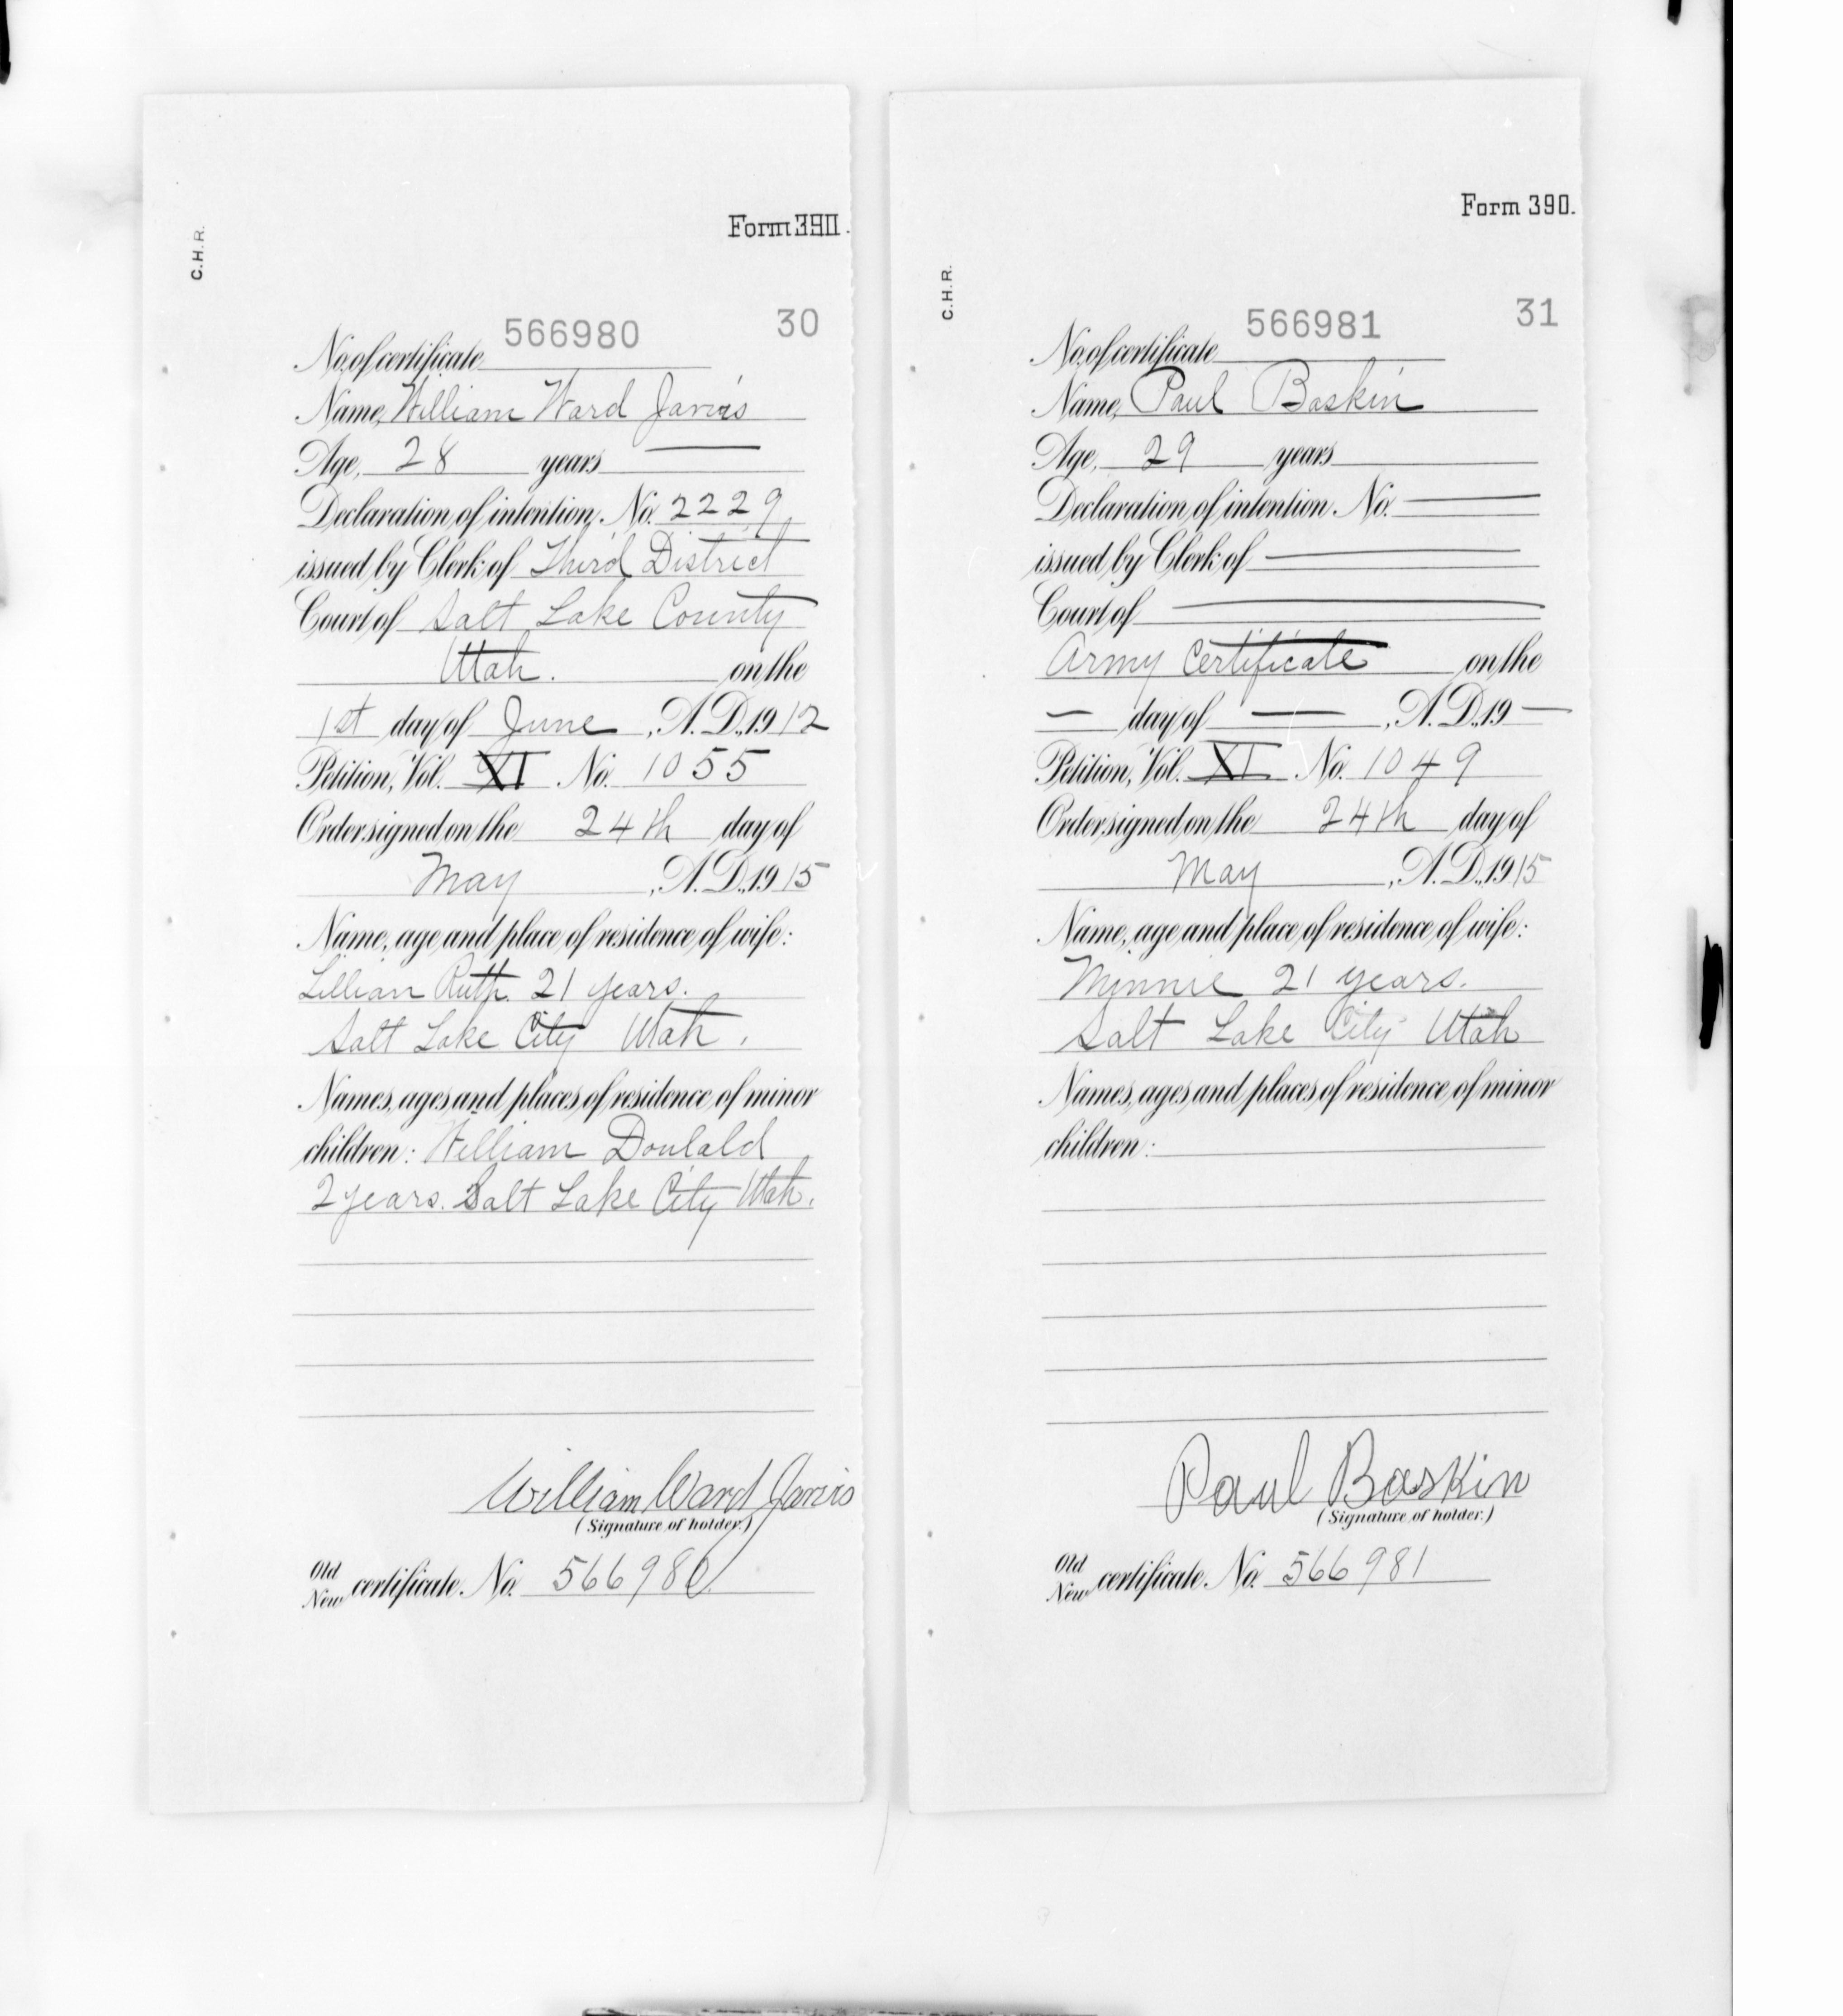 C.H.R.
Form 390.
566980 30
No. of certificate
Name, William Ward Jarvis
Age, 28 years
Declaration of intention, No. 2229
issued by Clerk of Third District
Court of Salt Lake County
Utah. on the
1st day of June, A. D., 1912
Petition, Vol. XI No. 1055
Order signed on the 24th day of
May, A. D., 1915
Name, age and place of residence of wife:
Lillian Ruth. 21 years.
Salt Lake City Utah.
Names, ages and places of residence of minor
children: William Doulald
2 years. Salt Lake City Utah.
William Ward Jarvis
(Signature of holder.)
Old
New certificate. No. 566980
C.H.R.
Form 390.
566981 31
No. of certificate
Name, Paul Baskin
Age, 29 years
Declaration of intention. No. —
issued by Clerk of —
Court of —
Army Certificate on the
— day of —, A. D., 19 —
Petition, Vol. XI No. 1049
Order signed on the 24th day of
May, A. D., 1915
Name, age and place of residence of wife:
Minnie 21 years.
Salt Lake City Utah
Names, ages and places of residence of minor
children:
Paul Baskin
(Signature of holder.)
Old
New certificate. No. 566981